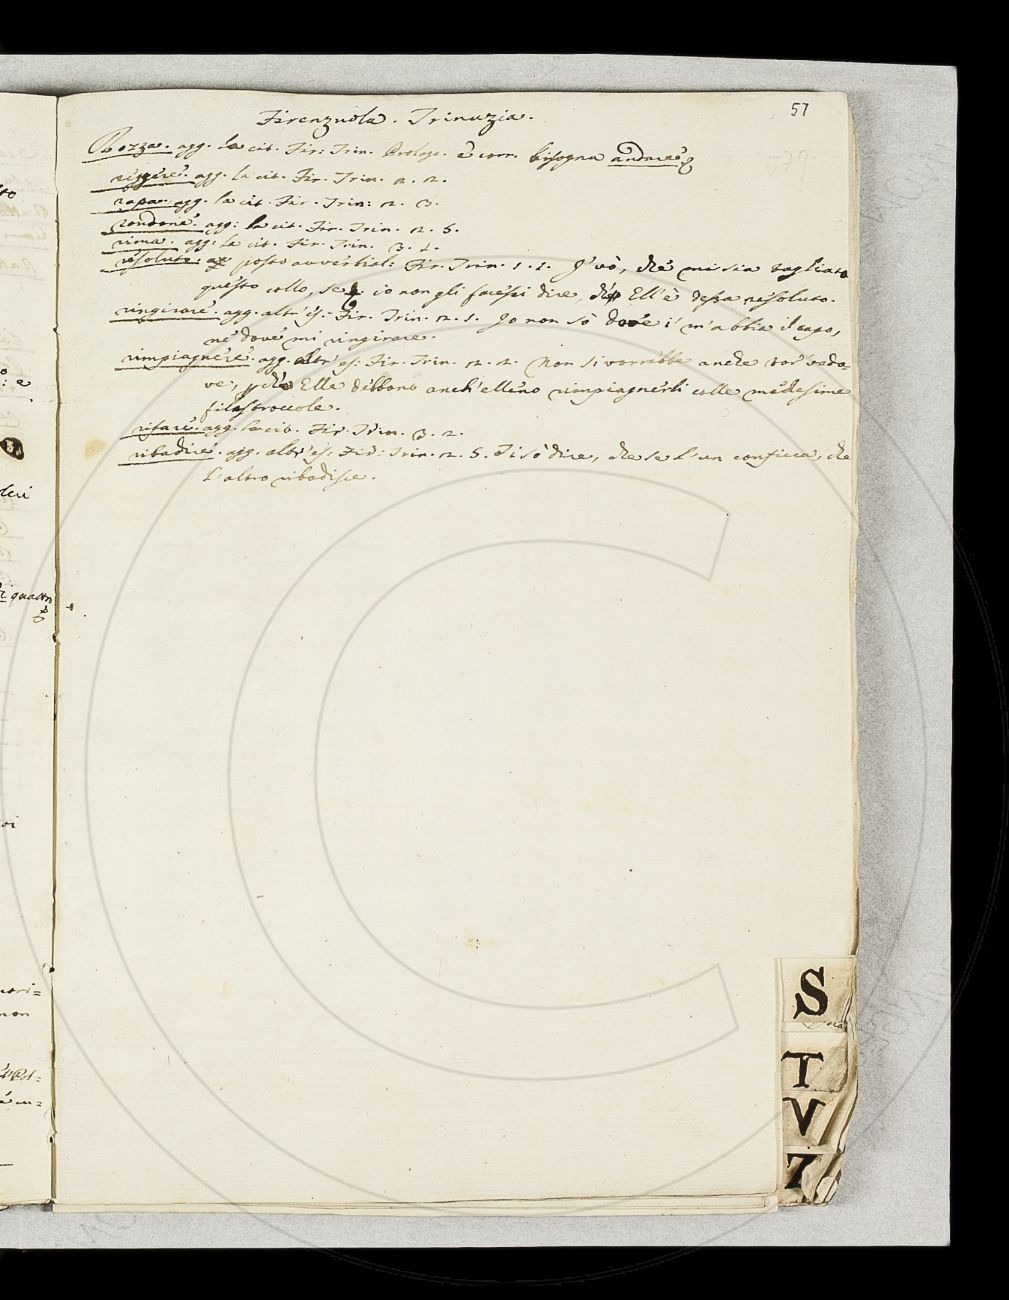 57
Firenzuola. Trinuzia.
Rozza. agg. la cit. Fir: Trin. Prologo. è corr. bisogna andare
reggere. agg. la cit. Fir. Trin. 2. 2.
rapa. agg. la cit. Fir. Trin: 2. 3.
rondone. agg: la cit. Fir. Trin. 2. 5.
rima. agg. la cit. Fir. Trin. 3. 1.
resoluto. posto avverbial: Fir. Trin. 1. 1. I' vò, che mi sia tagliato
questo collo, se io non gli facessi dire, Ell'è dessa resoluto.
ringirare. agg. altr' es: Fir. Trin. 2. 1. Io non sò dove i' m'abbia il capo,
nè dove mi ringirare.
rimpiagnere. agg. altr' es: Fir. Trin. 2. 2. Non si vorrebbe anche tor vedo
ve, Elle debbono anch'elleno rimpiagnerti colle medesime
filastroccole.
rifare. agg. la cit. Fir. Trin. 3. 2.
ribadire. agg. altr' es: Fir: Trin. 2. 5. Ti sò dire, che se l'un conficca, che
l'altro ribadisce.
e
quattro
S
T
V
Z